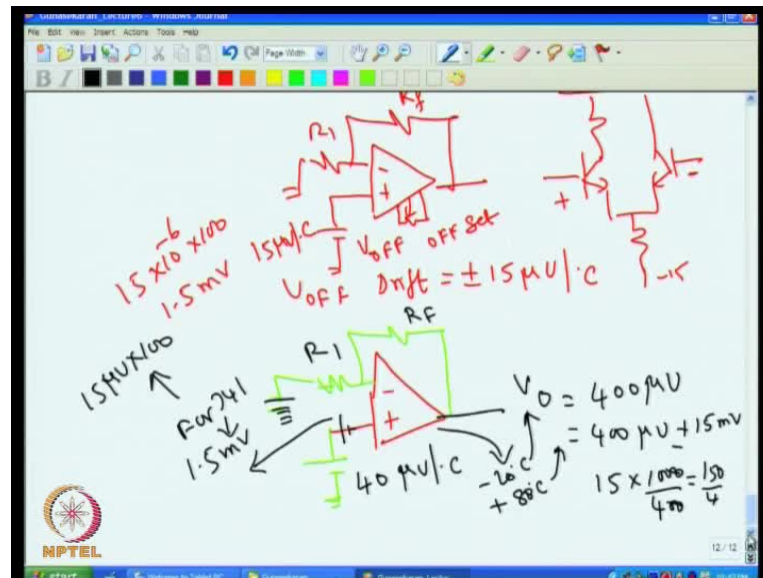 Gunasekaran_Lecture6 - Windows Journal
File Edit View Insert Actions Tools Help
Page Width
B I
Rf
R1
-
+
+
-
-15
15μV/.C
VOFF OFF Set
15×10-6×100
1.5mV
VOFF Drift = ±15μV/.C
15μV×100
For 741
1.5mV
R1
RF
-
+
40μV/.C
-20°C
+80°C
VO = 400μV
= 400μV±15mV
15×1000/400=150/4
NPTEL
12/12
start